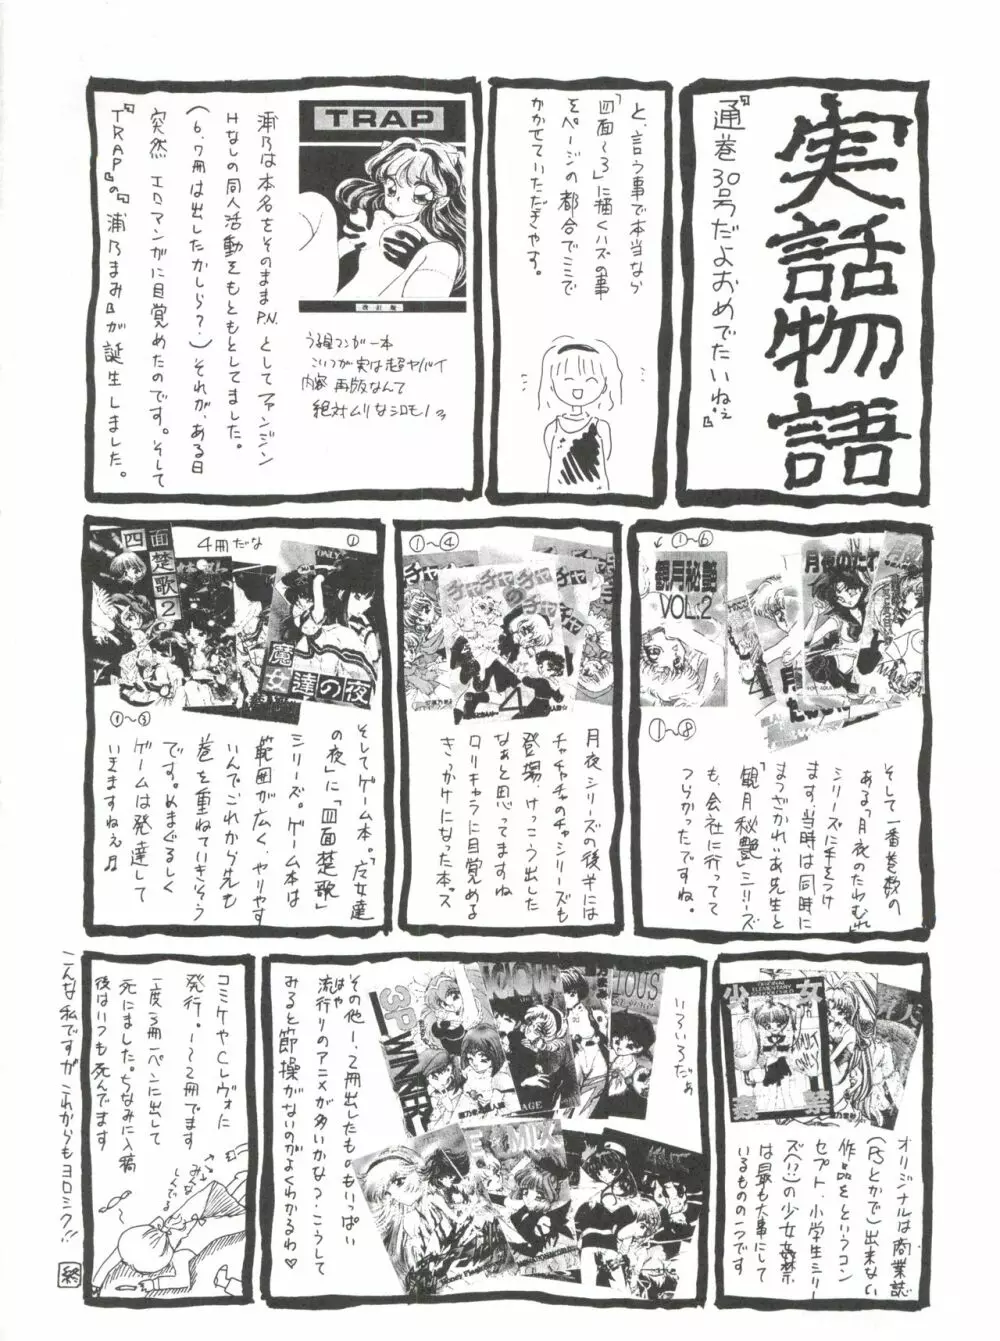 実話物語
『通巻30号だよおめでたいねぇ』
と、言う事で本当なら
「四面〜3」に描くハズの事
をページの都合でここで
かかせていただきやす。
TRAP
改訂版
うる星マンガ一本
こいつが実は超ヤバイ
内容 再版なんて
絶対ムリなシロモノ
浦乃は本名をそのままP.N.としてファンジン
Hなしの同人活動をもともとしてました。
(6、7冊は出したかしら?)それが、ある日
突然 エロマンガに目覚めたのです。そして
『TRAP』の『浦乃まみ』が誕生しました。
①〜⑥
観月秘艶
VOL.2
月夜のたわ
①〜⑧
そして一番巻数の
ある「月夜のたわむれ」
シリーズに手をつけ
ます。当時は同時に
まつざかれいあ先生と
「観月秘艶」シリーズ
も、会社に行ってて
つらかったですね。
①〜④
チャチャチャ
のチャ
4
月夜シリーズの後半には
チャチャチャのチャシリーズも
登場、けっこう出した
なぁと思ってますね
ロリキャラに目覚める
きっかけになった本。ス
4冊だな
①
四面楚歌2
魔女達の夜
①〜③
そしてゲーム本。「魔女達
の夜」に「四面楚歌」
シリーズ。ゲーム本は
範囲が広く、やりやす
いんでこれから先も
巻を重ねていきそう
です。めまぐるしく
ゲームは発達して
いきますねえ♬
少女姦禁
ADULT ONLY
オリジナルは商業誌
(PSとかで)出来ない
作品をというコン
セプト、小学生シリー
ズ(!?)の少女姦禁
は最も大事にして
いるものの一つです
いろいろだぁ
3P WINNER
MIX
その他1、2冊出したものもいっぱい
流行りのアニメが多いかな?こうして
はや
みると節操がないのがよくわかるわ♡
コミケやCレヴォに
発行。1〜2冊です
一度3冊一ペンに出して
死にました。ちなみに入稿
後はいつも死んでます
みんなしんでる
こんな私ですが これからもヨロシク!!
終